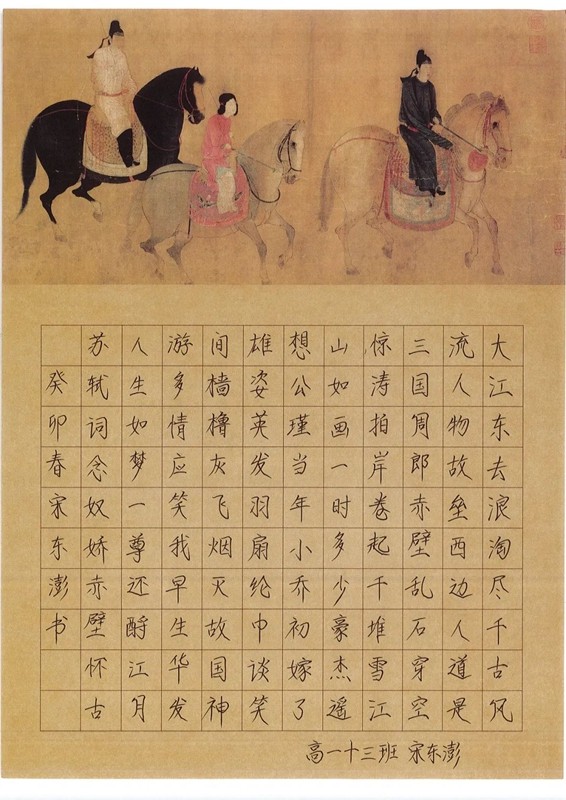 大江东去浪淘尽千古风
流人物故垒西边人道是
三国周郎赤壁乱石穿空
惊涛拍岸卷起千堆雪江
山如画一时多少豪杰遥
想公瑾当年小乔初嫁了
雄姿英发羽扇纶巾谈笑
间樯橹灰飞烟灭故国神
游多情应笑我早生华发
人生如梦一尊还酹江月
苏轼词念奴娇赤壁怀古
癸卯春宋东澎书
高一十三班 宋东澎